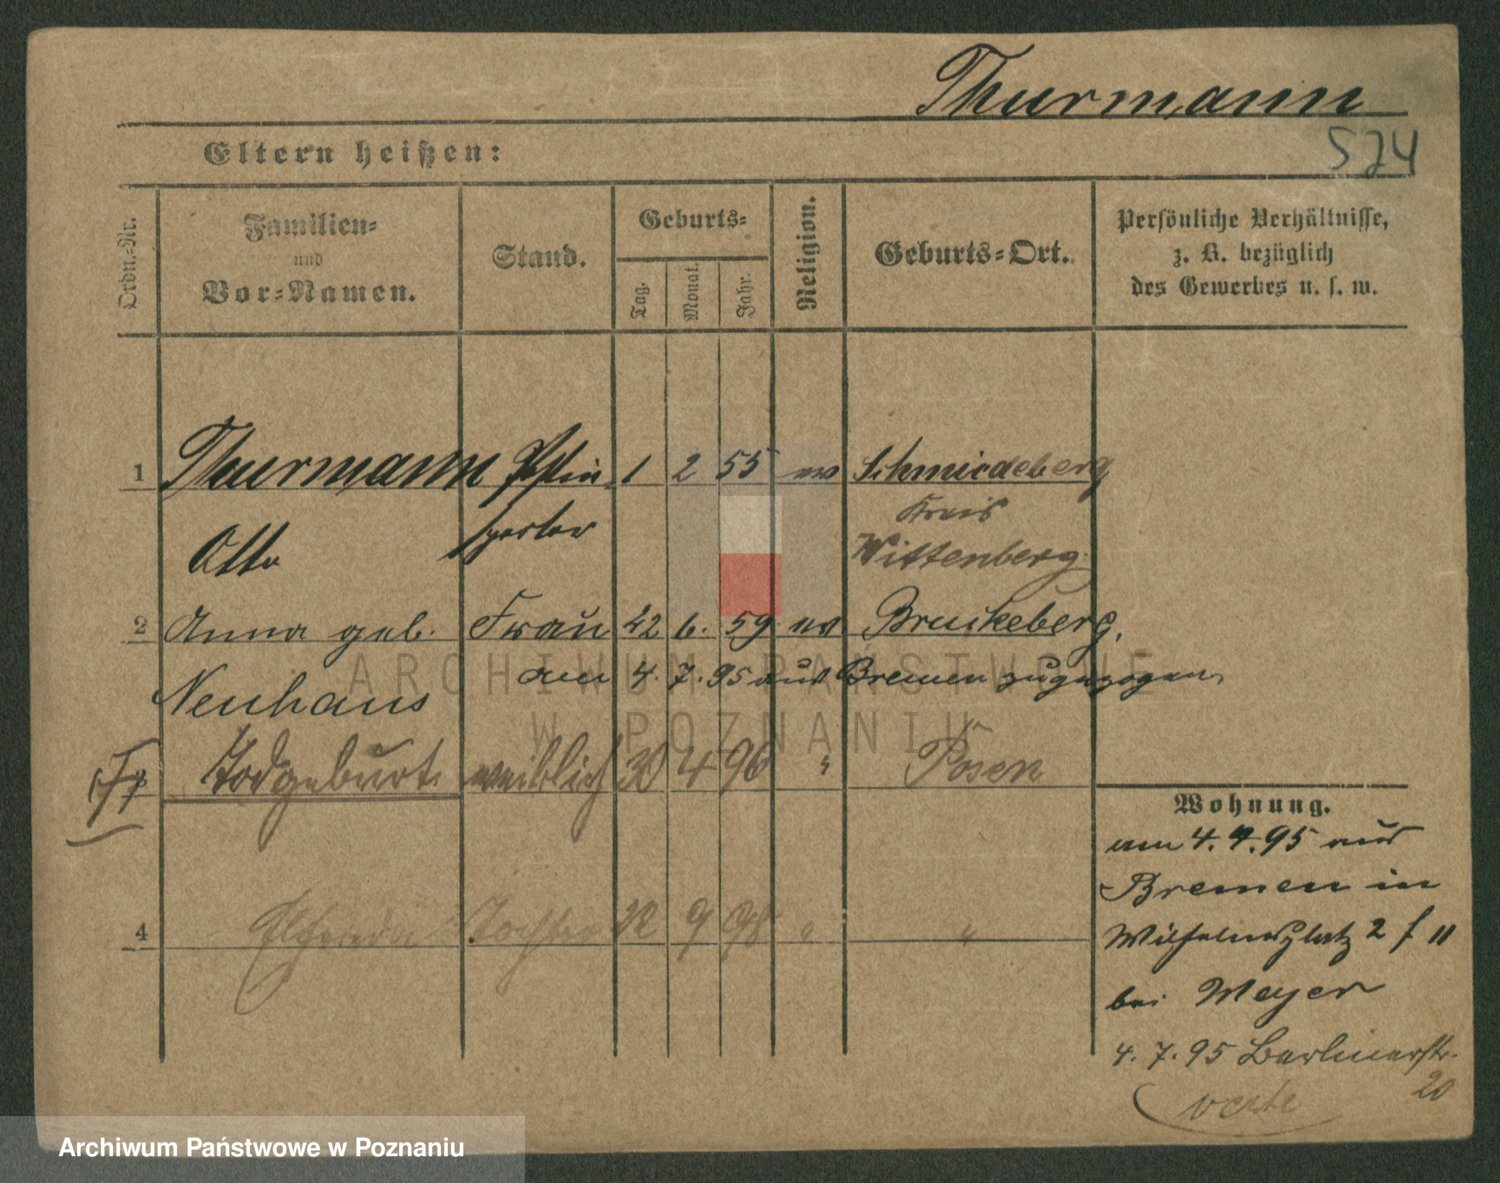 Thurmann
524
Eltern heißen:
Ordn.-Nr.
Familien-
und
Vor-Namen.
Stand.
Geburts-
Tag.
Monat.
Jahr.
Religion.
Geburts-Ort.
Persönliche Verhältnisse,
z. B. bezüglich
des Gewerbes u. s. w.
1 Thurmann 1 2 55 ev Schmiedeberg
Kreis
Otto Wittenberg
2 Anna geb. Frau 22 6. 59 ev
Neuhaus am 4. 7. 95 aus Bremen zugezogen
Todgeburt weiblich 30 4 96 " Posen
4 Elfrieda Tochter 9 98 " "
Wohnung.
am 4. 7. 95 aus
Bremen in
Wilhelmsplatz 2
bei Meyer
4. 7. 95 Berlinerstr.
20
verte
ARCHIWUM PAŃSTWOWE
W POZNANIU
Archiwum Państwowe w Poznaniu